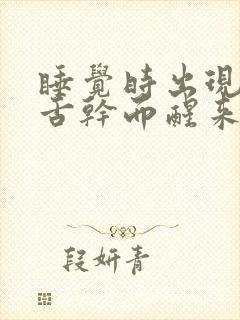 睡覺時出現
舌幹而醒來
段妍青